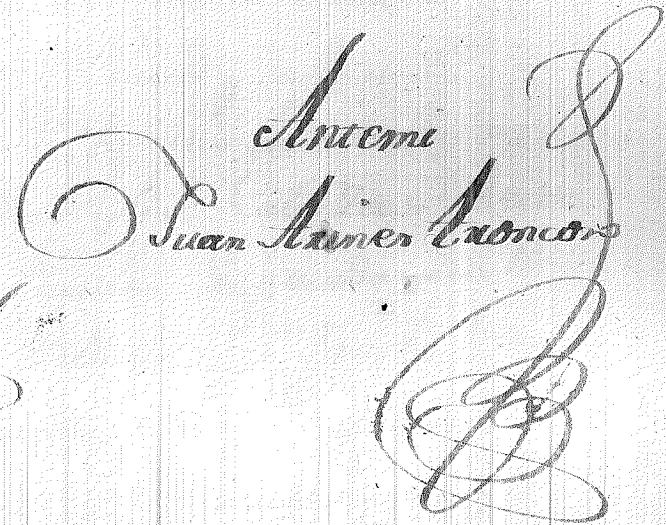 Antemi
Juan Armer Troncoso